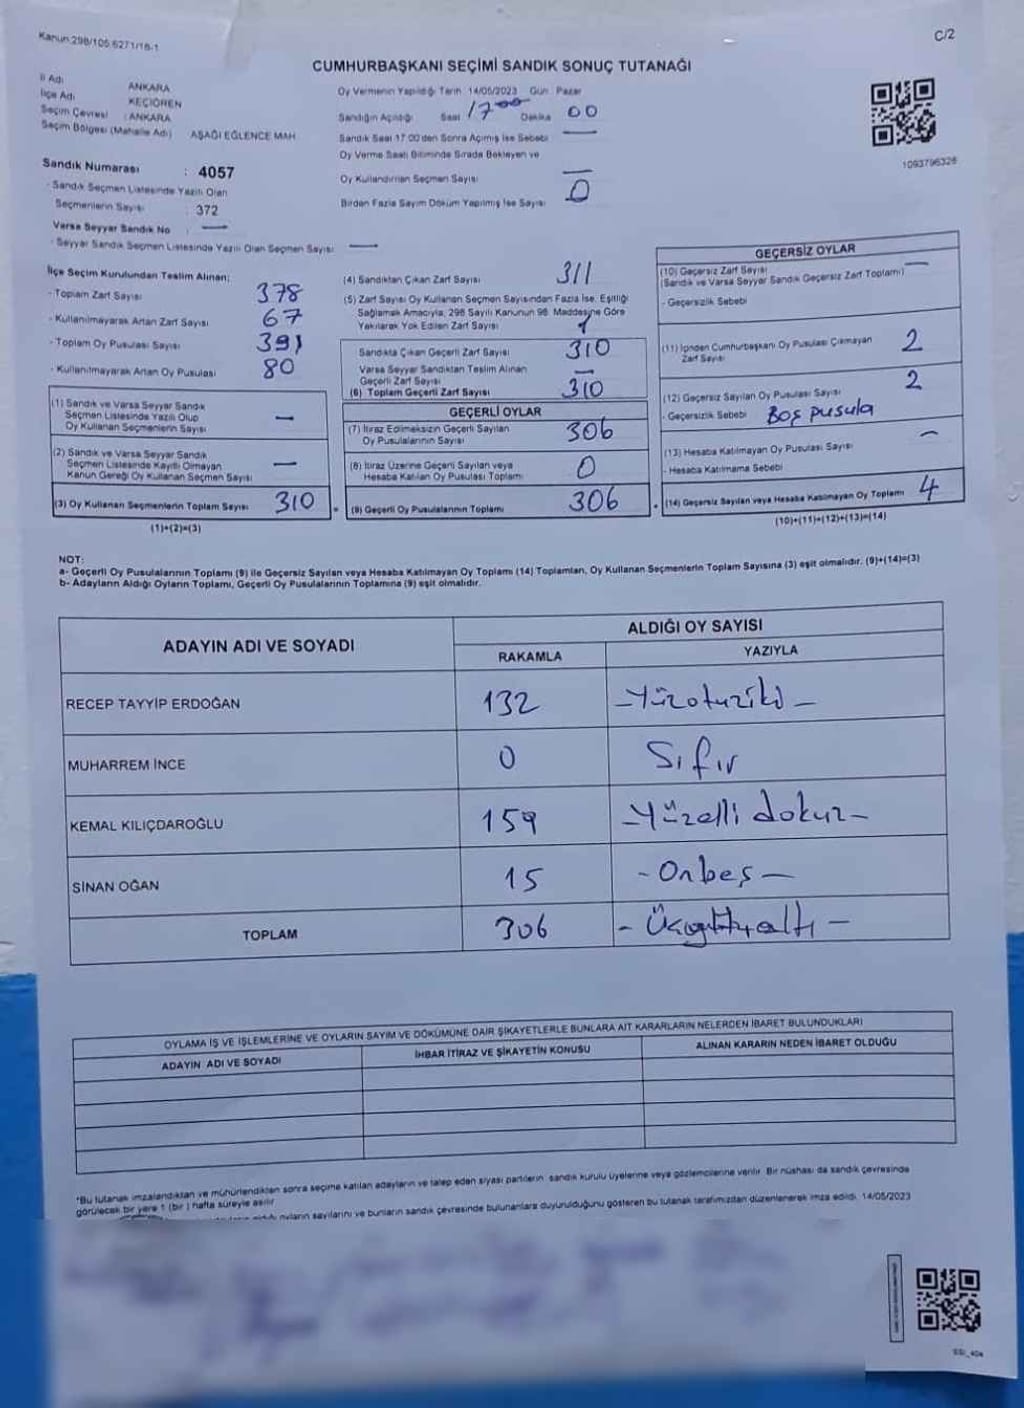 Kanun:298/105 6271/16-1
C/2
CUMHURBAŞKANI SEÇİMİ SANDIK SONUÇ TUTANAĞI
İl Adı ANKARA
İlçe Adı KEÇİÖREN
Seçim Çevresi : ANKARA
Seçim Bölgesi (Mahalle Adı) AŞAĞI EĞLENCE MAH.
Sandık Numarası : 4057
- Sandık Seçmen Listesinde Yazılı Olan
Seçmenlerin Sayısı : 372
Varsa Seyyar Sandık No : —
- Seyyar Sandık Seçmen Listesinde Yazılı Olan Seçmen Sayısı —
Oy Vermenin Yapıldığı Tarih 14/05/2023 Gün Pazar
Sandığın Açıldığı Saat 17 00 Dakika 00
Sandık Saat 17:00'den Sonra Açılmış İse Sebebi —
Oy Verme Saati Bitiminde Sırada Bekleyen ve
Oy Kullandırılan Seçmen Sayısı —
Birden Fazla Sayım Döküm Yapılmış İse Sayısı 0
1093796326
İlçe Seçim Kurulundan Teslim Alınan;
- Toplam Zarf Sayısı 378
- Kullanılmayarak Artan Zarf Sayısı 67
- Toplam Oy Pusulası Sayısı 391
- Kullanılmayarak Artan Oy Pusulası 80
(1) Sandık ve Varsa Seyyar Sandık
Seçmen Listesinde Yazılı Olup
Oy Kullanan Seçmenlerin Sayısı —
(2) Sandık ve Varsa Seyyar Sandık
Seçmen Listesinde Kayıtlı Olmayan
Kanun Gereği Oy Kullanan Seçmen Sayısı —
(3) Oy Kullanan Seçmenlerin Toplam Sayısı 310
(1)+(2)=(3)
(4) Sandıktan Çıkan Zarf Sayısı 311
(5) Zarf Sayısı Oy Kullanan Seçmen Sayısından Fazla İse, Eşitliği
Sağlamak Amacıyla, 298 Sayılı Kanunun 98. Maddesine Göre
Yakılarak Yok Edilen Zarf Sayısı 1
Sandıkta Çıkan Geçerli Zarf Sayısı 310
Varsa Seyyar Sandıktan Teslim Alınan
Geçerli Zarf Sayısı —
(6) Toplam Geçerli Zarf Sayısı 310
GEÇERLİ OYLAR
(7) İtiraz Edilmeksizin Geçerli Sayılan
Oy Pusulalarının Sayısı 306
(8) İtiraz Üzerine Geçerli Sayılan veya
Hesaba Katılan Oy Pusulası Toplamı 0
(9) Geçerli Oy Pusulalarının Toplamı 306
GEÇERSİZ OYLAR
(10) Geçersiz Zarf Sayısı —
(Sandık ve Varsa Seyyar Sandık Geçersiz Zarf Toplamı)
- Geçersizlik Sebebi
(11) İçinden Cumhurbaşkanı Oy Pusulası Çıkmayan
Zarf Sayısı 2
(12) Geçersiz Sayılan Oy Pusulası Sayısı 2
- Geçersizlik Sebebi Boş pusula
(13) Hesaba Katılmayan Oy Pusulası Sayısı —
- Hesaba Katılmama Sebebi
(14) Geçersiz Sayılan veya Hesaba Katılmayan Oy Toplamı 4
(10)+(11)+(12)+(13)=(14)
NOT:
a- Geçerli Oy Pusulalarının Toplamı (9) ile Geçersiz Sayılan veya Hesaba Katılmayan Oy Toplamı (14) Toplamları, Oy Kullanan Seçmenlerin Toplam Sayısına (3) eşit olmalıdır. (9)+(14)=(3)
b- Adayların Aldığı Oyların Toplamı, Geçerli Oy Pusulalarının Toplamına (9) eşit olmalıdır.
ADAYIN ADI VE SOYADI
ALDIĞI OY SAYISI
RAKAMLA YAZIYLA
RECEP TAYYİP ERDOĞAN 132 -Yüzotuziki-
MUHARREM İNCE 0 Sıfır
KEMAL KILIÇDAROĞLU 159 -Yüzelli dokuz-
SİNAN OĞAN 15 -Onbeş-
TOPLAM 306
OYLAMA İŞ VE İŞLEMLERİNE VE OYLARIN SAYIM VE DÖKÜMÜNE DAİR ŞİKAYETLERLE BUNLARA AİT KARARLARIN NELERDEN İBARET BULUNDUKLARI
ADAYIN ADI VE SOYADI İHBAR İTİRAZ VE ŞİKAYETİN KONUSU ALINAN KARARIN NEDEN İBARET OLDUĞU
*Bu tutanak imzalandıktan ve mühürlendikten sonra seçime katılan adayların ve talep eden siyasi partilerin sandık kurulu üyelerine veya gözlemcilerine verilir. Bir nüshası da sandık çevresinde
görülecek bir yere 1 (bir) hafta süreyle asılır
aldığı oyların sayılarını ve bunların sandık çevresinde bulunanlara duyurulduğunu gösteren bu tutanak tarafımızdan düzenlenerek imza edildi. 14/05/2023